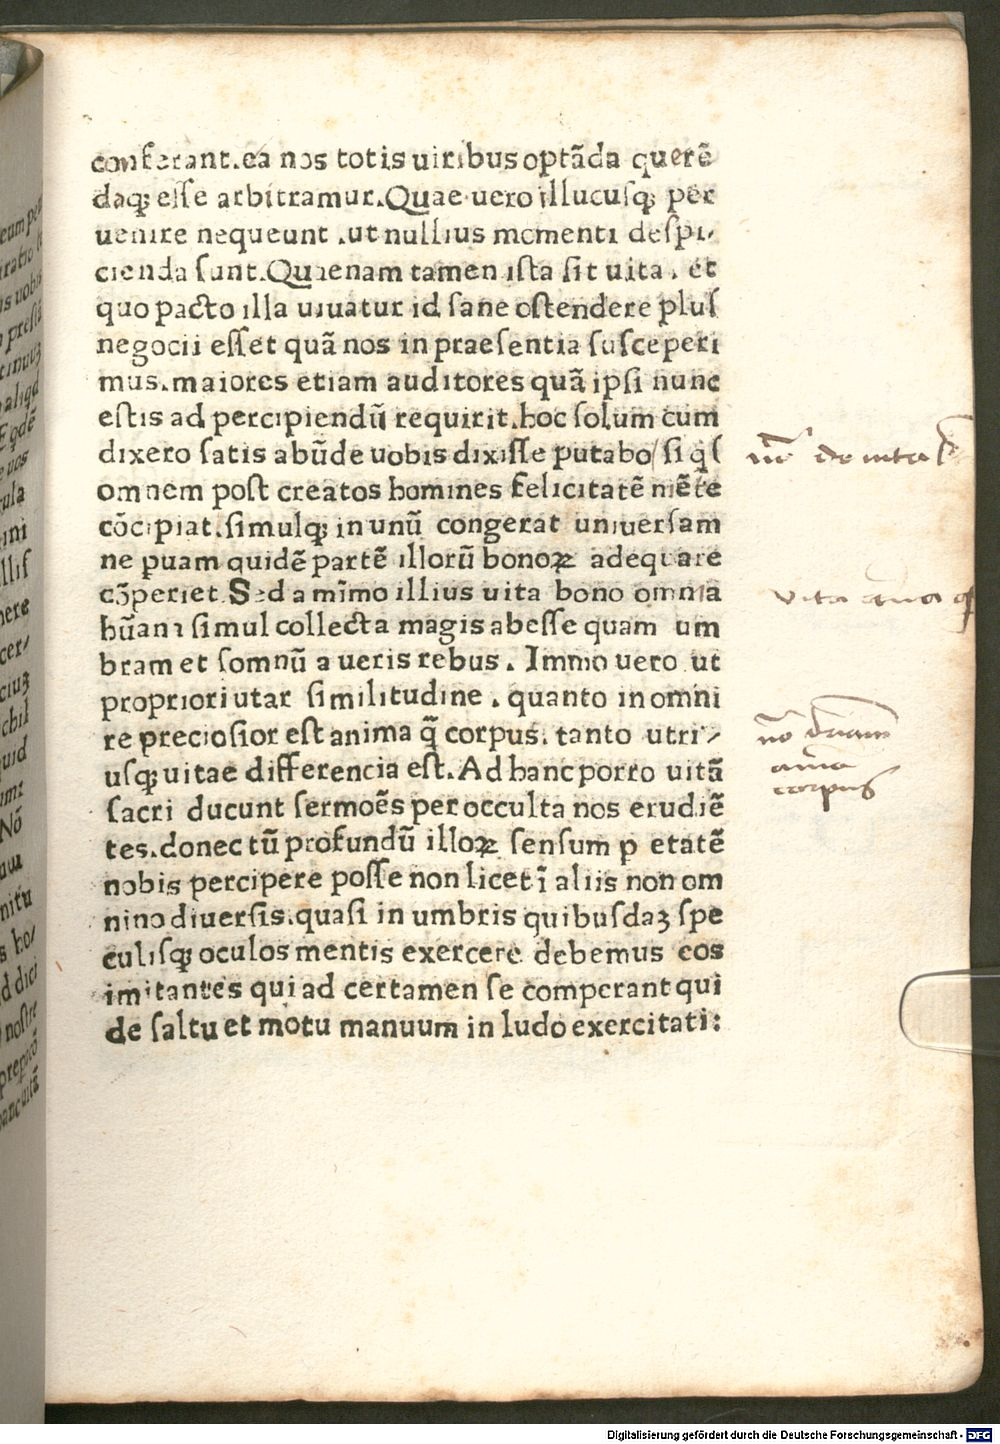 conferant.ea nos totis uiribus optãda querẽ
daqꝫ esse arbitramur.Quae uero illucusqꝫ per
uenire nequeunt .ut nullius momenti despi-
cienda sunt.Quaenam tamen ista sit uita. et
quo pacto illa uiuatur id sane ostendere pluſ
negocii esset quã nos in praesentia susceperi
mus.maiores etiam auditores quã ipsi nunc
estis ad percipiendũ requirit.hoc solum cum
dixero satis abũde uobis dixisse putabo/si qſ
omnem post creatos homines felicitatẽ mẽte
cõcipiat.simulqꝫ in unũ congerat uniuersam
ne puam quidẽ partẽ illorũ bonoꝝ adequare
cõperiet.Sed a mĩmo illius uita bono omnia
hũana simul collecta magis abesse quam um
bram et somnũ a ueris rebus. Immo uero ut
propriori utar similitudine. quanto in omni
re preciosior est anima q̃ corpus. tanto utri-
usqꝫ uitae differencia est.Ad hanc porro uitã
sacri ducunt sermões per occulta nos erudiẽ
tes.donec tũ profundũ illoꝝ sensum p etatẽ
nobis percipere posse non licet ĩ aliis non om
nino diuersis.quasi in umbris quibusdaꝫ spe
culisqꝫ oculos mentis exercere debemus eos
imitantes qui ad certamen se comperant qui
de saltu et motu manuum in ludo exercitati:
de uita
vita
corpus
eum
uobis
nos
cula
ini
llis
nere
cer-
quid
Nõ
nitu
s ho-
d dici
nostre
hanc uitã
Digitalisierung gefördert durch die Deutsche Forschungsgemeinschaft - DFG